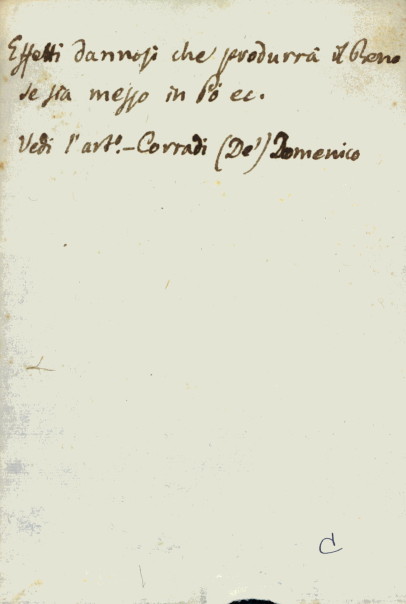 Effetti dannosi che produrrà il Reno
se sia messo in Pò ec.
Vedi l'art.º - Corradi (De') Domenico
C